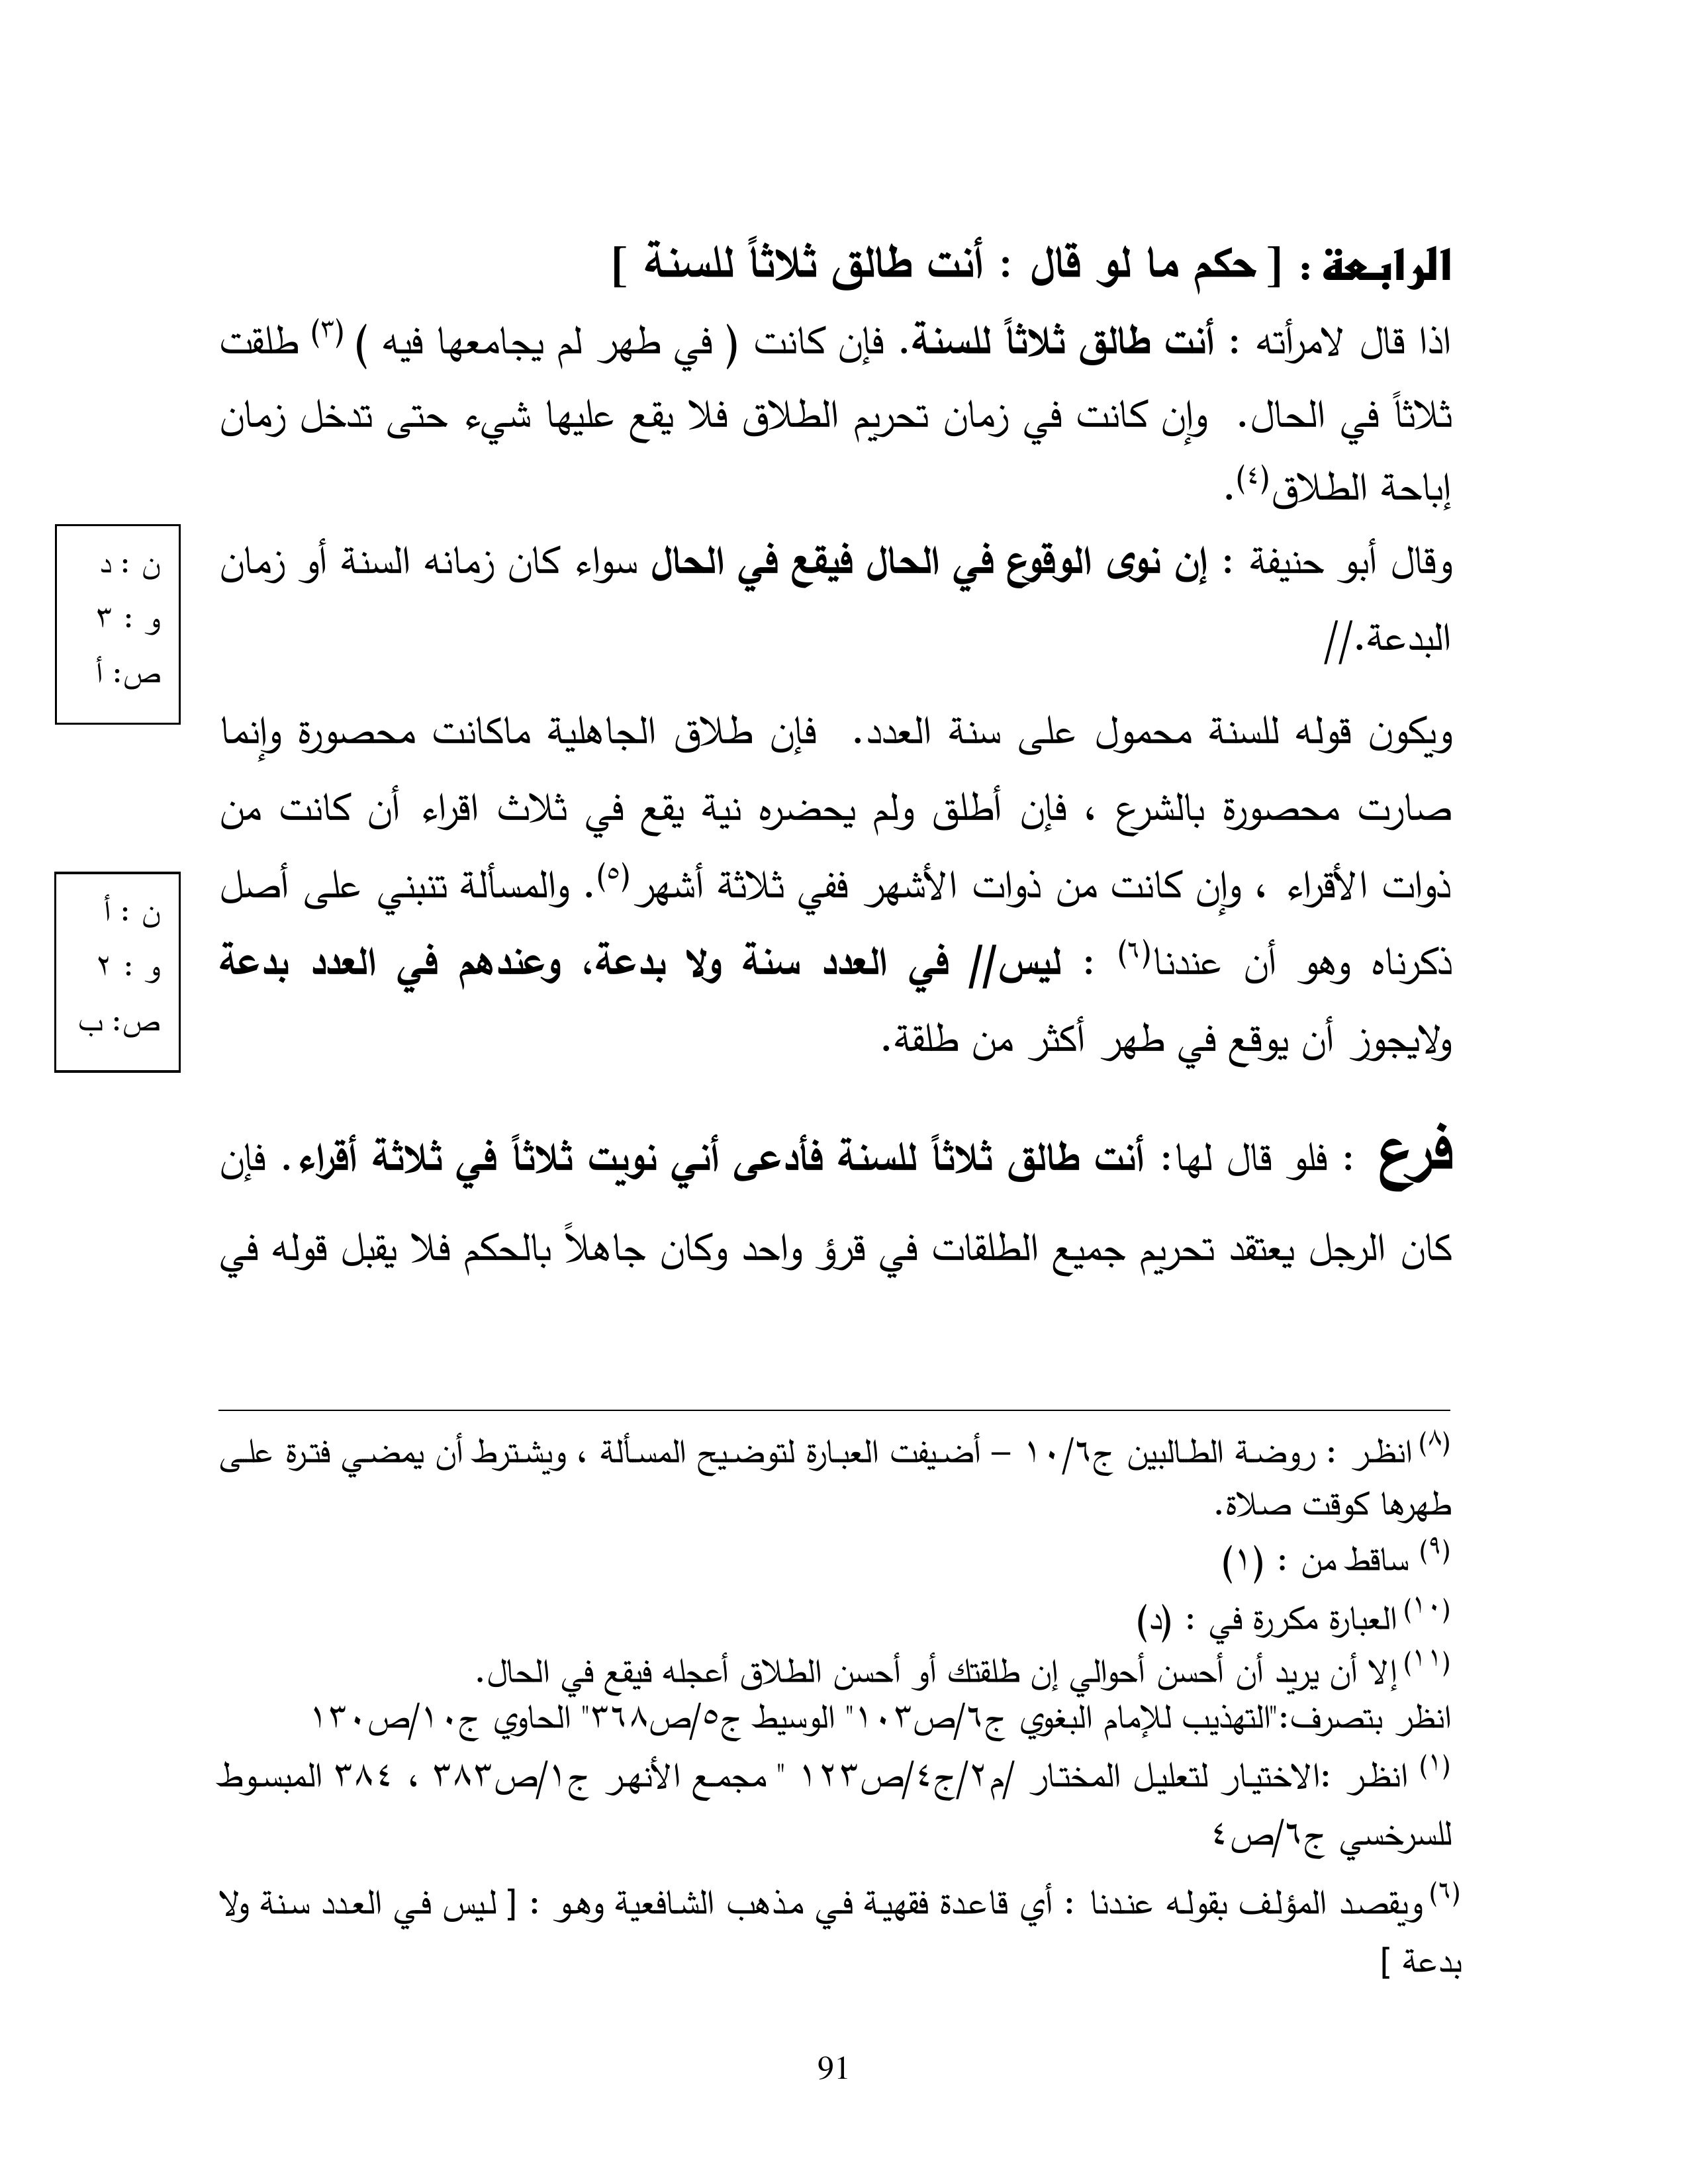 الرابعة : [ حكم ما لو قال : أنت طالق ثلاثاً للسنة ]
اذا قال لامرأته : أنت طالق ثلاثاً للسنة. فإن كانت ( في طهر لم يجامعها فيه ) (٣) طلقت
ثلاثاً في الحال. وإن كانت في زمان تحريم الطلاق فلا يقع عليها شيء حتى تدخل زمان
إباحة الطلاق(٤).
وقال أبو حنيفة : إن نوى الوقوع في الحال فيقع في الحال سواء كان زمانه السنة أو زمان
البدعة.//
ن : د
و : ٣
ص: أ
ويكون قوله للسنة محمول على سنة العدد. فإن طلاق الجاهلية ماكانت محصورة وإنما
صارت محصورة بالشرع ، فإن أطلق ولم يحضره نية يقع في ثلاث اقراء أن كانت من
ذوات الأقراء ، وإن كانت من ذوات الأشهر ففي ثلاثة أشهر(٥). والمسألة تنبني على أصل
ذكرناه وهو أن عندنا(٦) : ليس// في العدد سنة ولا بدعة، وعندهم في العدد بدعة
ولايجوز أن يوقع في طهر أكثر من طلقة.
ن : أ
و : ٢
ص: ب
فرع : فلو قال لها: أنت طالق ثلاثاً للسنة فأدعى أني نويت ثلاثاً في ثلاثة أقراء. فإن
كان الرجل يعتقد تحريم جميع الطلقات في قرؤ واحد وكان جاهلاً بالحكم فلا يقبل قوله في
(٨) انظر : روضة الطالبين ج٦/١٠ – أضيفت العبارة لتوضيح المسألة ، ويشترط أن يمضي فترة على
طهرها كوقت صلاة.
(٩) ساقط من : (١)
(١٠) العبارة مكررة في : (د)
(١١) إلا أن يريد أن أحسن أحوالي إن طلقتك أو أحسن الطلاق أعجله فيقع في الحال.
انظر بتصرف:"التهذيب للإمام البغوي ج٦/ص١٠٣" الوسيط ج٥/ص٣٦٨" الحاوي ج١٠/ص١٣٠
(١) انظر :الاختيار لتعليل المختار /م٢/ج٤/ص١٢٣ " مجمع الأنهر ج١/ص٣٨٣ ، ٣٨٤ المبسوط
للسرخسي ج٦/ص٤
(٦) ويقصد المؤلف بقوله عندنا : أي قاعدة فقهية في مذهب الشافعية وهو : [ ليس في العدد سنة ولا
بدعة ]
91